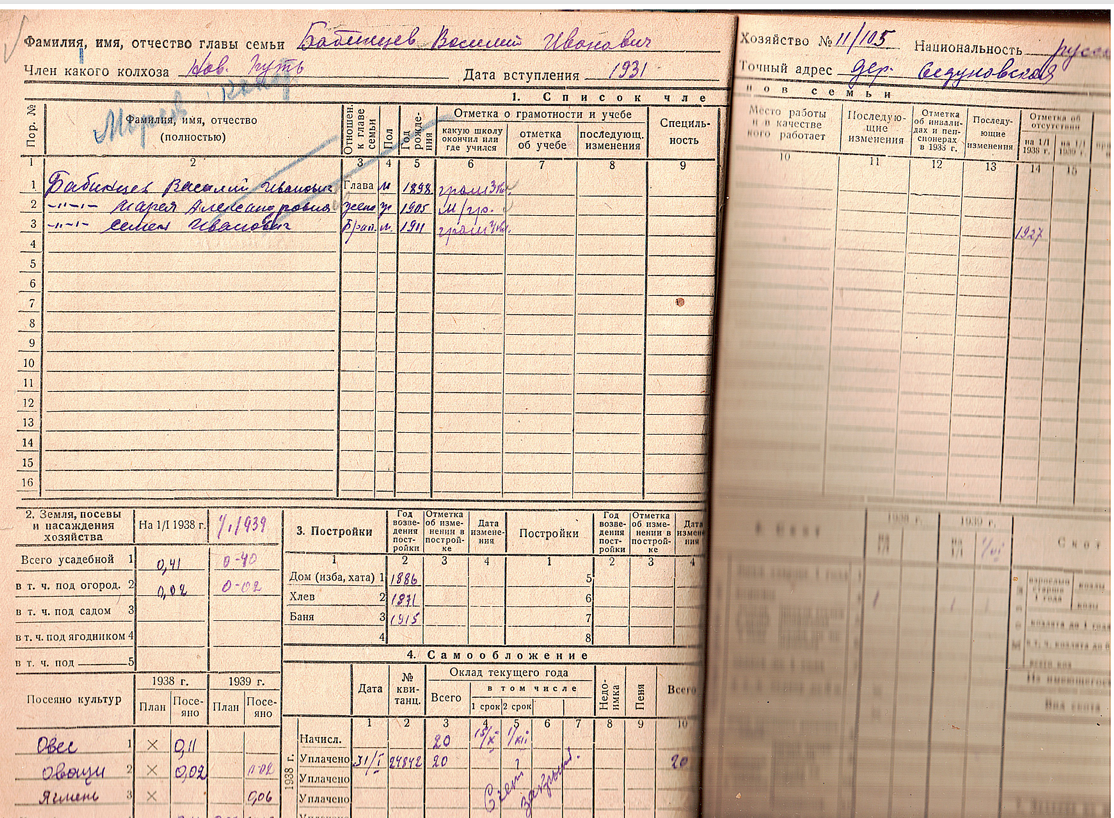 Фамилия, имя, отчество главы семьи Бабинцев Василий Иванович
Член какого колхоза Нов. путь Дата вступления 1931
Хозяйство № 11/105 Национальность русск
Точный адрес дер. Седуновская
1. Список чле
нов семьи
Пор. № Фамилия, имя, отчество (полностью) Отношен. к главе семьи Пол Год рождения Отметка о грамотности и учебе Специльность
какую школу окончил или где учился отметка об учебе последующ. изменения
Место работы и в качестве кого работает Последующие изменения Отметка об инвалидах и пенсионерах в 1938 г. Последующие изменения Отметка об отсутствии
на 1/I 1938 г. на 1/I 1939 г.
1 2 3 4 5 6 7 8 9 10 11 12 13 14 15
1 Бабинцев Василий Иванович Глава м 1898 грам 3 кл.
2 -"-"- Мария Александровна жена ж 1905 м/гр.
3 -"-"- Семен Иванович брат м. 1911 1927
4
5
6
7
8
9
10
11
12
13
14
15
16
2. Земля, посевы и насаждения хозяйства На 1/I 1938 г. 1/I 1939
Всего усадебной 1 0,41 0-40
в т. ч. под огород. 2 0,02 0-02
в т. ч. под садом 3
в т. ч. под ягодником 4
в т. ч. под 5
Посеяно культур 1938 г. 1939 г.
План Посеяно План Посеяно
Овес 1 × 0,11
Овощи 2 × 0,02 0-02
Ячмень 3 × 0,06
3. Постройки Год возведения постройки Отметка об изменении в постройке Дата изменения Постройки Год возведения постройки Отметка об измен. в постройке Дата измене
1 2 3 4 1 2 3 4
Дом (изба, хата) 1 1886 5
Хлев 2 1871 6
Баня 3 1915 7
4 8
4. Самообложение
Дата № квитанц. Оклад текущего года Недоимка Пеня Всего
Всего в том числе
1 срок 2 срок
1 2 3 4 5 6 7 8 9 10
1938 г.
Начисл. 20 15/X 1/XII
Уплачено 31/I 24842 20 20
Уплачено
Уплачено
Счет закрыт.
1938 г. 1939 г.
Скот